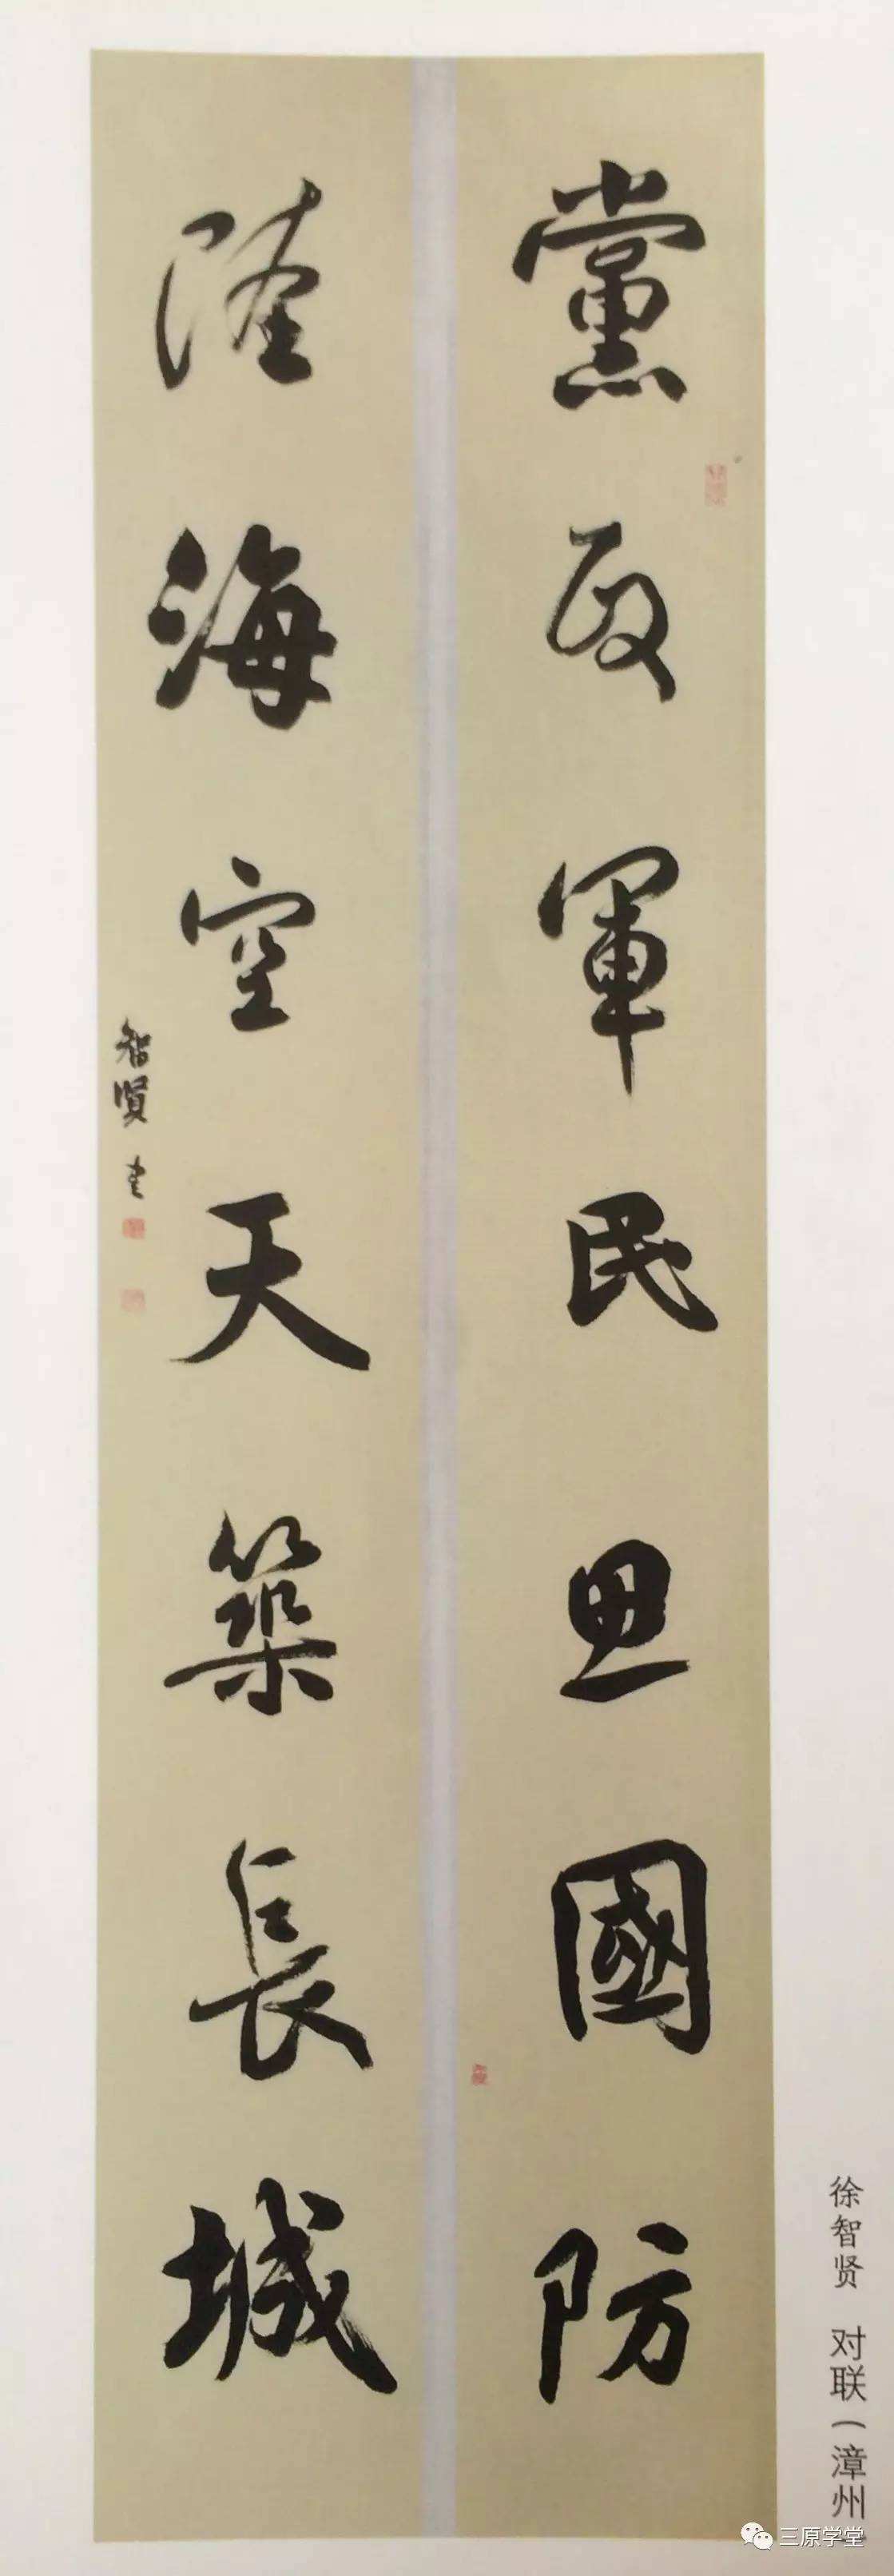 黨政軍民思國防
陸海空天築長城
智賢書
徐智贤 对联（漳州）
三原学堂